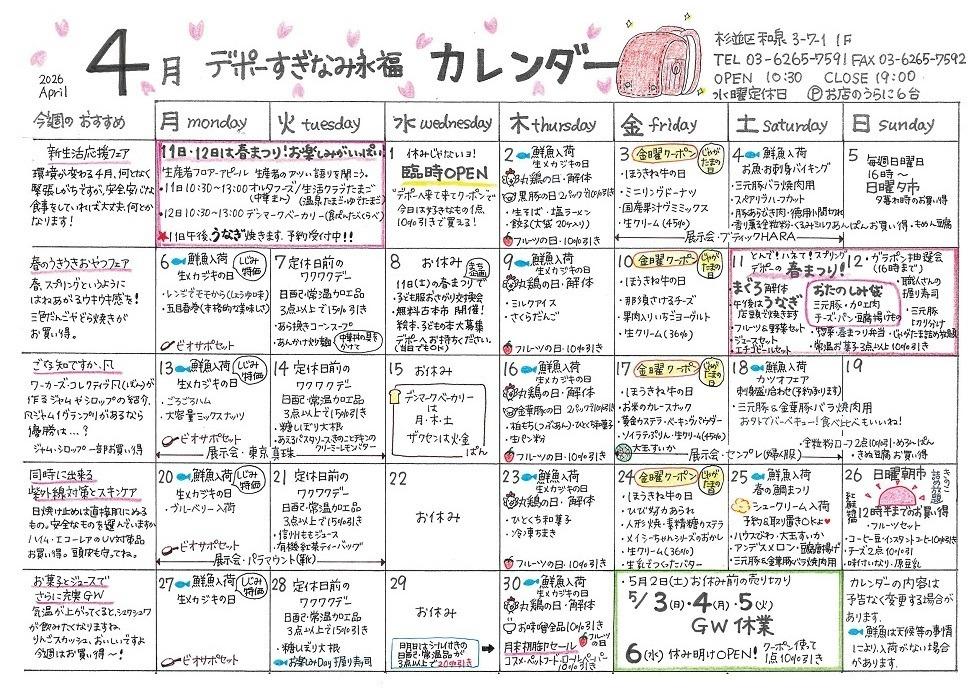 2026
April
4月 デポーすぎなみ永福 カレンダー
杉並区和泉 3-7-1 1F
TEL 03-6265-7591 FAX 03-6265-7592
OPEN 10:30 CLOSE 19:00
水曜定休日 Ⓟお店のうらに6台
今週のおすすめ
月 monday
火 tuesday
水 wednesday
木 thursday
金 friday
土 saturday
日 sunday
新生活応援フェア
環境が変わる4月、何となく
緊張しがちですが、安全安心な
食事をしていれば大丈夫、何とか
なります!
11日・12日は春まつり!お楽しみがいっぱい
生産者フロアーアピール 生産者のアツい語りを聞こう。
・11日 10:30~13:00 オルタフーズ/生活クラブたまご
(中華まん)
(温泉たまご・ゆでたまご)
・12日 10:30~13:00 デンマークベーカリー(食ぱんたべくらべ)
★11日午後、うなぎ焼きます。予約受付中!!
1 休みじゃないョ!
臨時OPEN
"デポー来て来てクーポン"で
今日は好きなもの1点、
10%引きで買える!
2 鮮魚入荷
生メカジキの日
丸鶏の日・解体
黒豚の日 2パック10%引き
・生そば・塩ラーメン
・餃子(大袋20ヶ入り)
フルーツの日・10%引き
3 金曜クーポン
じゃがたまの日
・ほうきね牛の日
・ミニリングドーナツ
・国産果汁グミミックス
・生クリーム(45%)
展示会・ブティックHARA
4 鮮魚入荷
お魚・お刺身バイキング
・三元豚バラ焼肉用
・スペアリブ・ハーフカット
・豚あらびき肉・徳用小間切れ
5 毎週日曜日
16時~
日曜夕市
夕暮れ時のお買い得
春のうきうきおやつフェア
春、スプリングというように
はねあがるウキウキ感を!
三色だんごやどら焼きが
お買い得。
6 鮮魚入荷
生メカジキの日
しじみ特価
・五目春巻(本格的な美味しさ)
ビオサポセット
7 定休日前の
ワクワクデー
日配・常温加工品
3点以上で15%引き
・あら挽きコーンスープ
・あんかけ炒り麺
8 お休み
まち企画
11日(土)の春まつりで
・子ども服おさがり交換会
・無料古本市 開催!
絵本、子ども古本大募集
デポーへお持ちください。
(当日でもOK)
9 鮮魚入荷
生メカジキの日
丸鶏の日・解体
・ミルクアイス
・さくらだんご
フルーツの日・10%引き
10 金曜クーポン
じゃがたまの日
・ほうきね牛の日
・那須ナチュラルさけるチーズ
・果肉入りいちごヨーグルト
・生クリーム(36%)
11 とんで!はねて!スプリング
デポーの春まつり!
まぐろ解体
・午後はうなぎ
店頭で焼きます
・フルーツ&野菜セット
・ジュースセット
・エチゴビールセット
おたのしみ袋
三元豚・加工肉
チーズ・パン・豆腐揚げもの
・惣菜・春まつり弁当
・常温お菓子3点以上10%引き
12 ・ガラポン抽選会
(16時まで)
・職人さんの
握り寿司
・三元豚
切り分け
・じゃがたま詰め放題
ごぞんじですか、凡
ワーカーズ・コレクティブ凡(ぼん)が
作るジャムやシロップの紹介。
凡ジャム1グランプリがあるなら
優勝は…?
ジャム・シロップ一部お買い得
13 鮮魚入荷
生メカジキの日
しじみ特価
・ごろごろハム
・大容量ミックスナッツ
ビオサポセット
展示会・東京真珠
14 定休日前の
ワクワクデー
日配・常温加工品
3点以上で15%引き
・糖しぼり大根
15 お休み
デンマークベーカリー
は
月・木・土
ザクセンは火・金
ぱん
16 鮮魚入荷
生メカジキの日
丸鶏の日・解体
金華豚の日 2パック10%引き
・柏もち(つぶあん)・ひとくち味噌
・生パン粉
フルーツの日・10%引き
17 金曜クーポン
じゃがたまの日
・ほうきね牛の日
・お米のカレースナック
・黄金カステラ・ベーキングパウダー
・ソイラテぷりん・生クリーム(45%)
大玉すいか
展示会・センプレ(婦人服)
18 鮮魚入荷
カツオフェア
刺身盛り合わせ(予約承ります)
・三元豚&金華豚バラ焼肉用
おうちでバーベキュー!食べ比べもいいね!
・きぬ豆腐お買い得
19
同時に出来る
紫外線対策とスキンケア
日焼け止めは直接肌にぬる
もの。安全なものを選んでいますか
ハイム・エコーレアのUV対策品
お買い得。頭皮も守ってね。
20 鮮魚入荷
生メカジキの日
しじみ特価
・ブルーベリー入荷
ビオサポセット
展示会・パラマウント(靴)
21 定休日前の
ワクワクデー
日配・常温加工品
3点以上で15%引き
・信州ももジュース
・有機紅茶ティーバッグ
22
お休み
23 鮮魚入荷
生メカジキの日
丸鶏の日・解体
・ひとくち和菓子
・冷凍ちまき
フルーツの日・10%引き
24 金曜クーポン
じゃがたまの日
・ほうきね牛の日
・ひび割れあられ
・人形焼・素精糖カステラ
・メイシーちゃんシリーズのおかし
・生クリーム(36%)
・生乳でつくったバター
25 鮮魚入荷
春の鯛まつり
シュークリーム入荷
予約&取り置きOKよ♥
・ハウスびわ・大玉すいか
・アンデスメロン・豆腐唐揚げ
・三元豚&金華豚バラ焼肉用
26 日曜朝市
12時半までのお買い得
・フルーツセット
・コーヒー豆・インスタントコーヒー10%引き
・チーズ2点10%引き
・味付いなり・原豆乳
お菓子とジュースで
さらに充実GW
気温が上がってくると、シュワシュワ
が飲みたくなりますね。
りんごスカッシュ、おいしいですよ
今週はお買い得~!
27 鮮魚入荷
生メカジキの日
しじみ特価
ビオサポセット
28 定休日前の
ワクワクデー
日配・常温加工品
3点以上で15%引き
・糖しぼり大根
お楽しみDay握り寿司
29
お休み
明日はシール付きの
日配・常温品が
3点以上で20%引き
30 鮮魚入荷
生メカジキの日
丸鶏の日・解体
お味噌全品10%引き
月末棚卸セール
フルーツの日
コスメ・ペットフード・ロールペーパー
10%引き
・5月2日(土)お休み前の売り切り
5/3(日)・4(月)・5(火)
GW休業
6(水)休み明けOPEN!
クーポン使って
1点10%引き
カレンダーの内容は
予告なく変更する場合が
あります。
鮮魚は天候等の事情
により、入荷がない場合
があります。